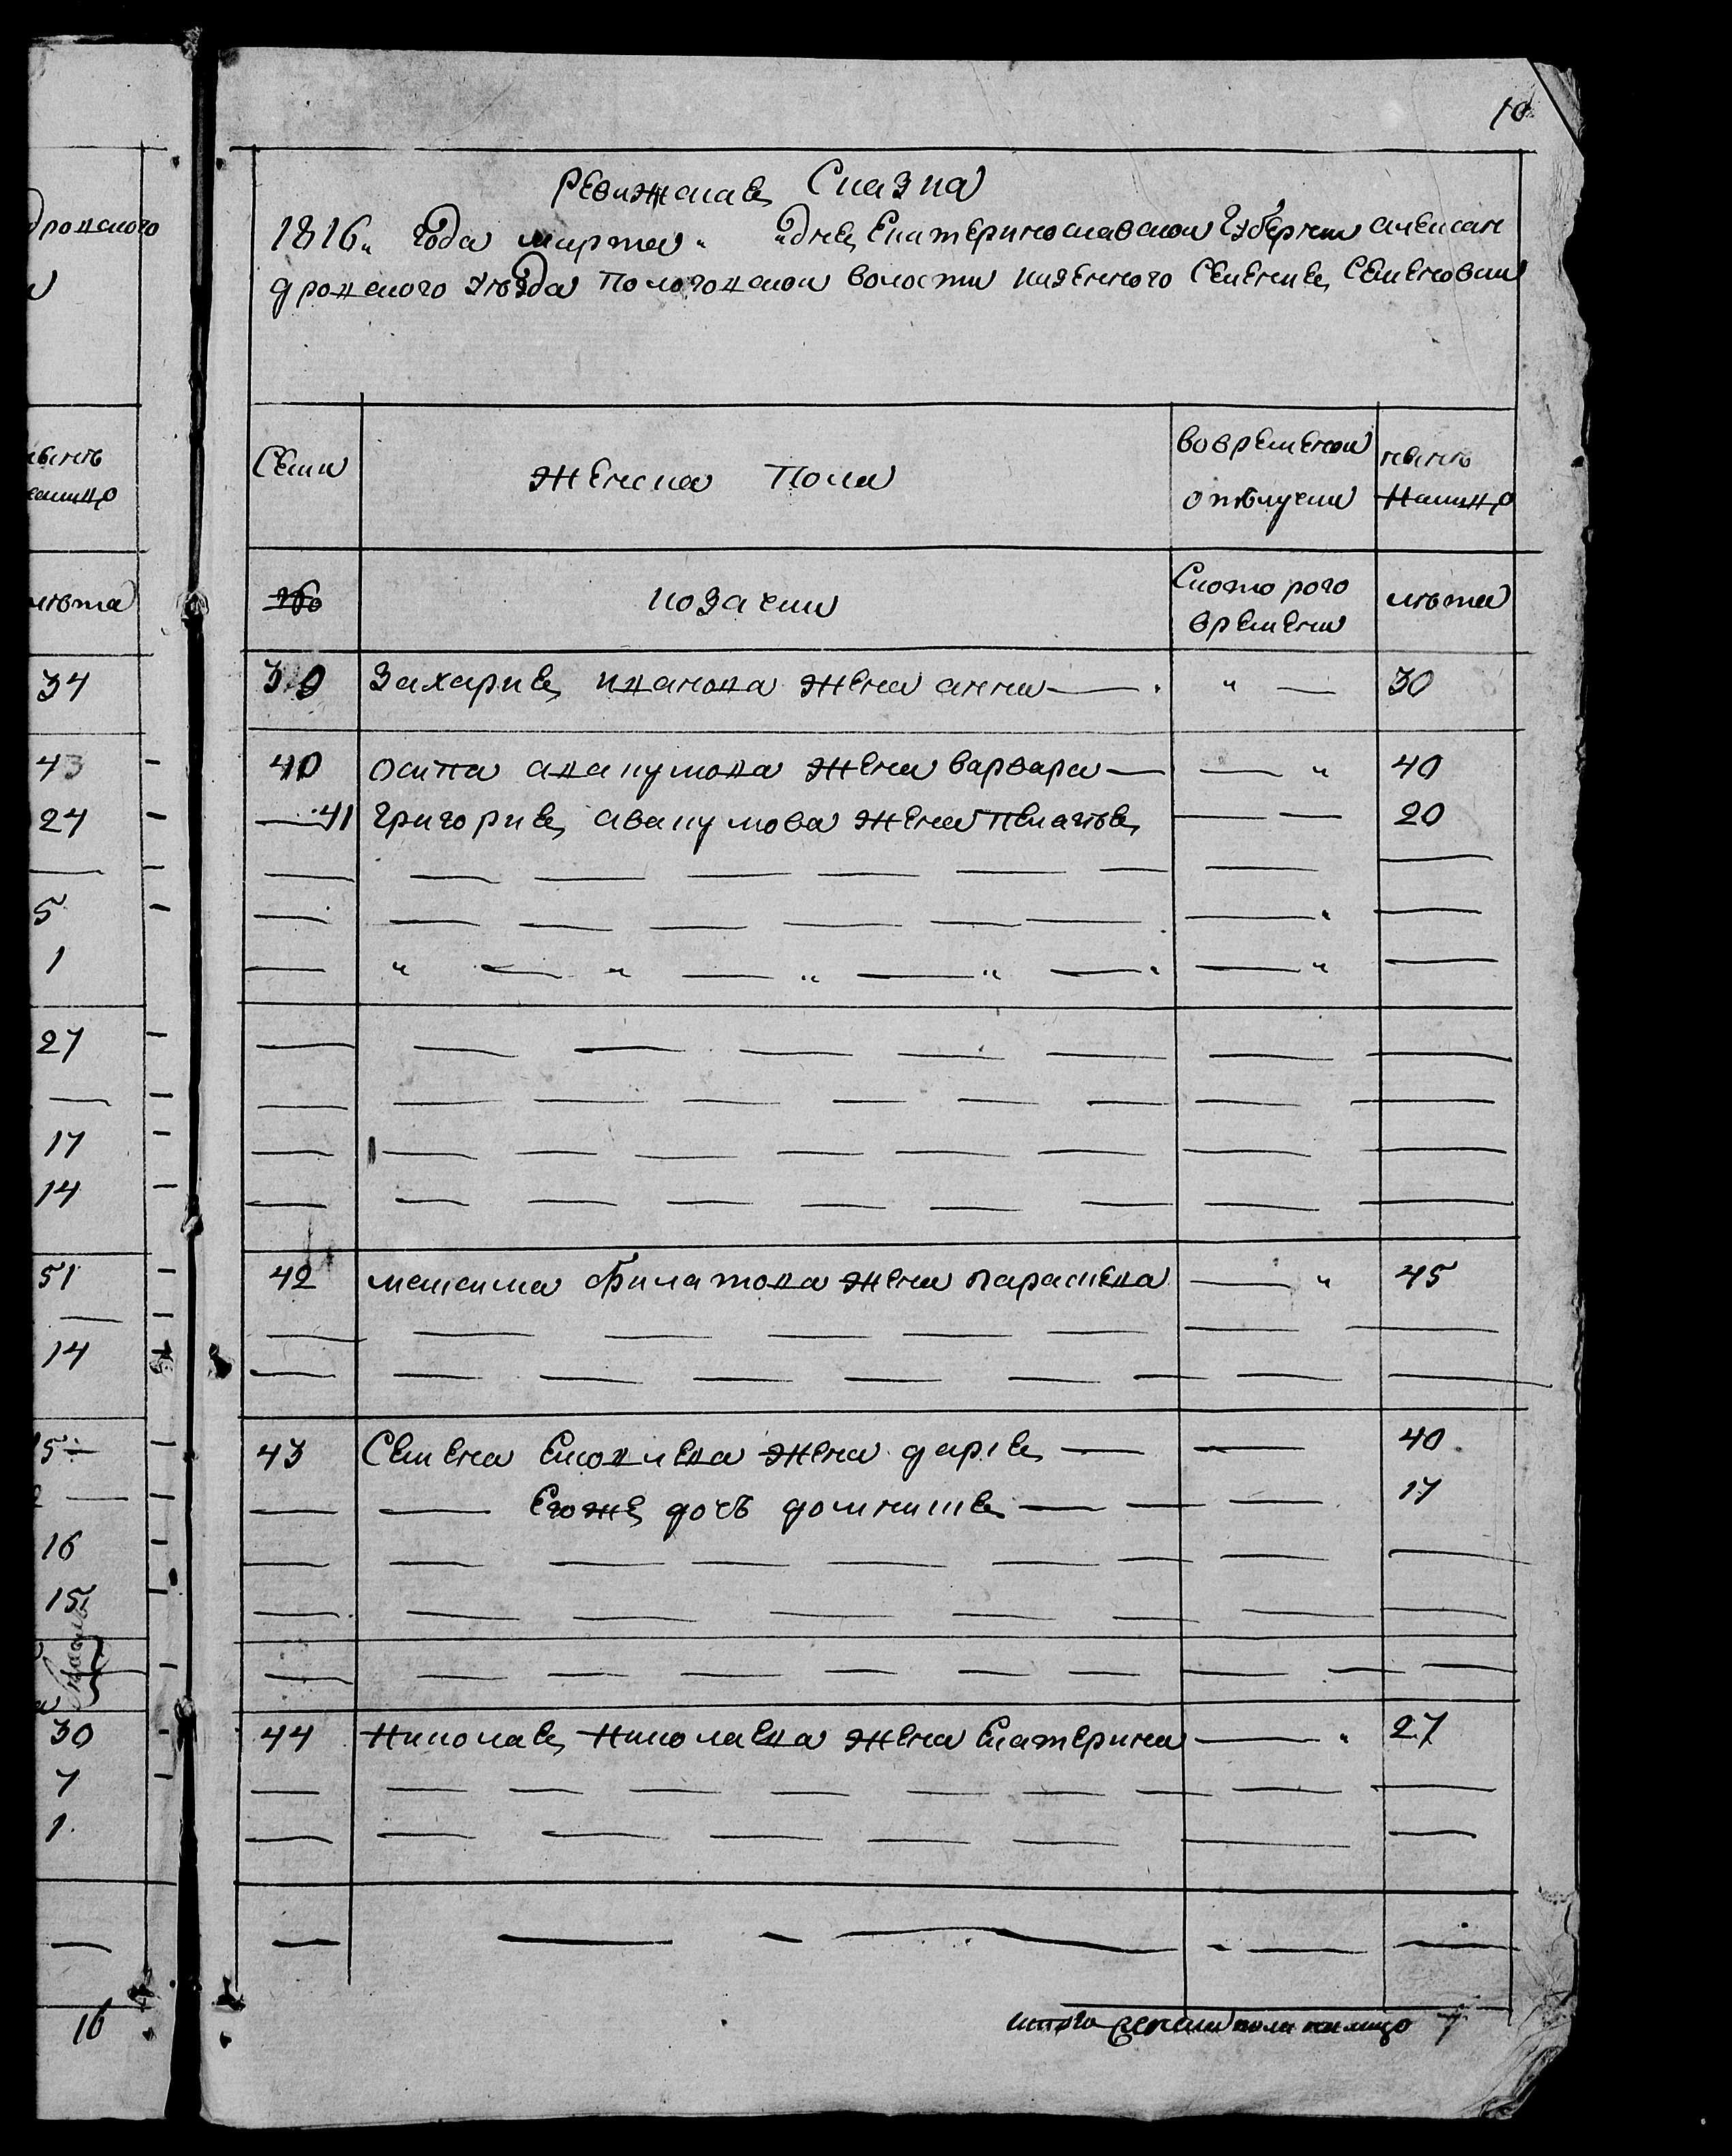 10
Ревижская Сказка
1816„ Года марта „ „ дня Екатеринославской Губернии алексан
дровского уѣзда Пологовской волости казенного Селения Семеновки
Семи | женска Пола | во временной отлучки | нынѣ Налицо
№ | козачки | С которого времени | лѣта
39 | Захария иванова жена анна — | „ — | 30
40 | осипа авакумова жена варвара — | — „ | 40
— 41 | григория авакумова жена Пелагѣя | — — | 20
42 | максима Филатова жена параскева | — „ | 45
43 | Семена Яковлева жена дария — | — | 40
— | — Егоже дочь домникия — | — | 17
44 | Николая Николаева жена Екатерина | — „ | 27
итого женска пола налицо 7
дровского
нынѣ
налицо
лѣта
34
43
24
5
1
27
17
14
51
14
15
16
15
30
7
1
16